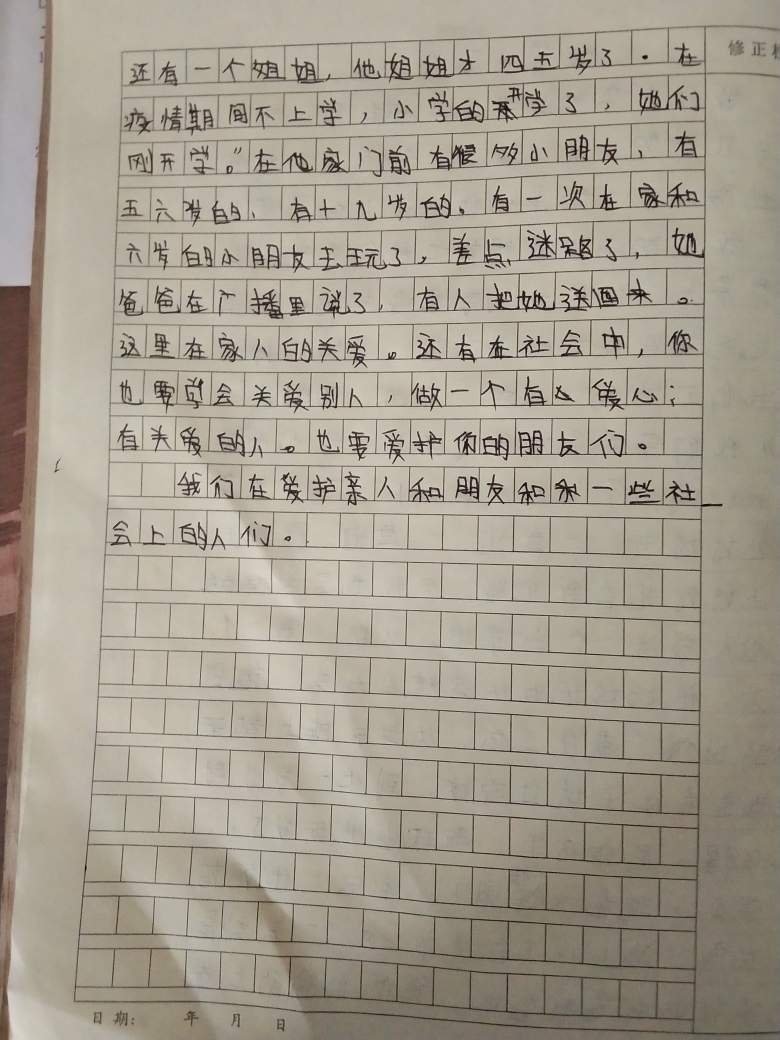 修正
还有一个姐姐，他姐姐才四五岁了。在
疫情期间不上学，小学的开学了，她们
刚开学。”在他家门前有很多小朋友，有
五六岁的、有十九岁的。有一次在家和
六岁的小朋友去玩了，差点迷路了，她
爸爸在广播里说了，有人把她送回来。
这里在家人的关爱。还有在社会中，你
也要学会关爱别人，做一个有爱心；
有关爱的人。也要爱护你的朋友们。
我们在爱护亲人和朋友和一些社
会上的人们。
日期： 年 月 日